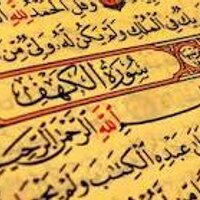 وَقُلِ الْحَمْدُ لِلَّهِ
فِي الْمُلْكِ وَلَمْ يَكُن لَّهُ وَلِيٌّ مِّنَ
سُورَةُ الْكَهْفِ
اللَّهِ الرَّحْمَٰنِ الرَّحِيمِ
عَبْدِهِ الْكِتَابَ وَلَمْ يَجْعَل